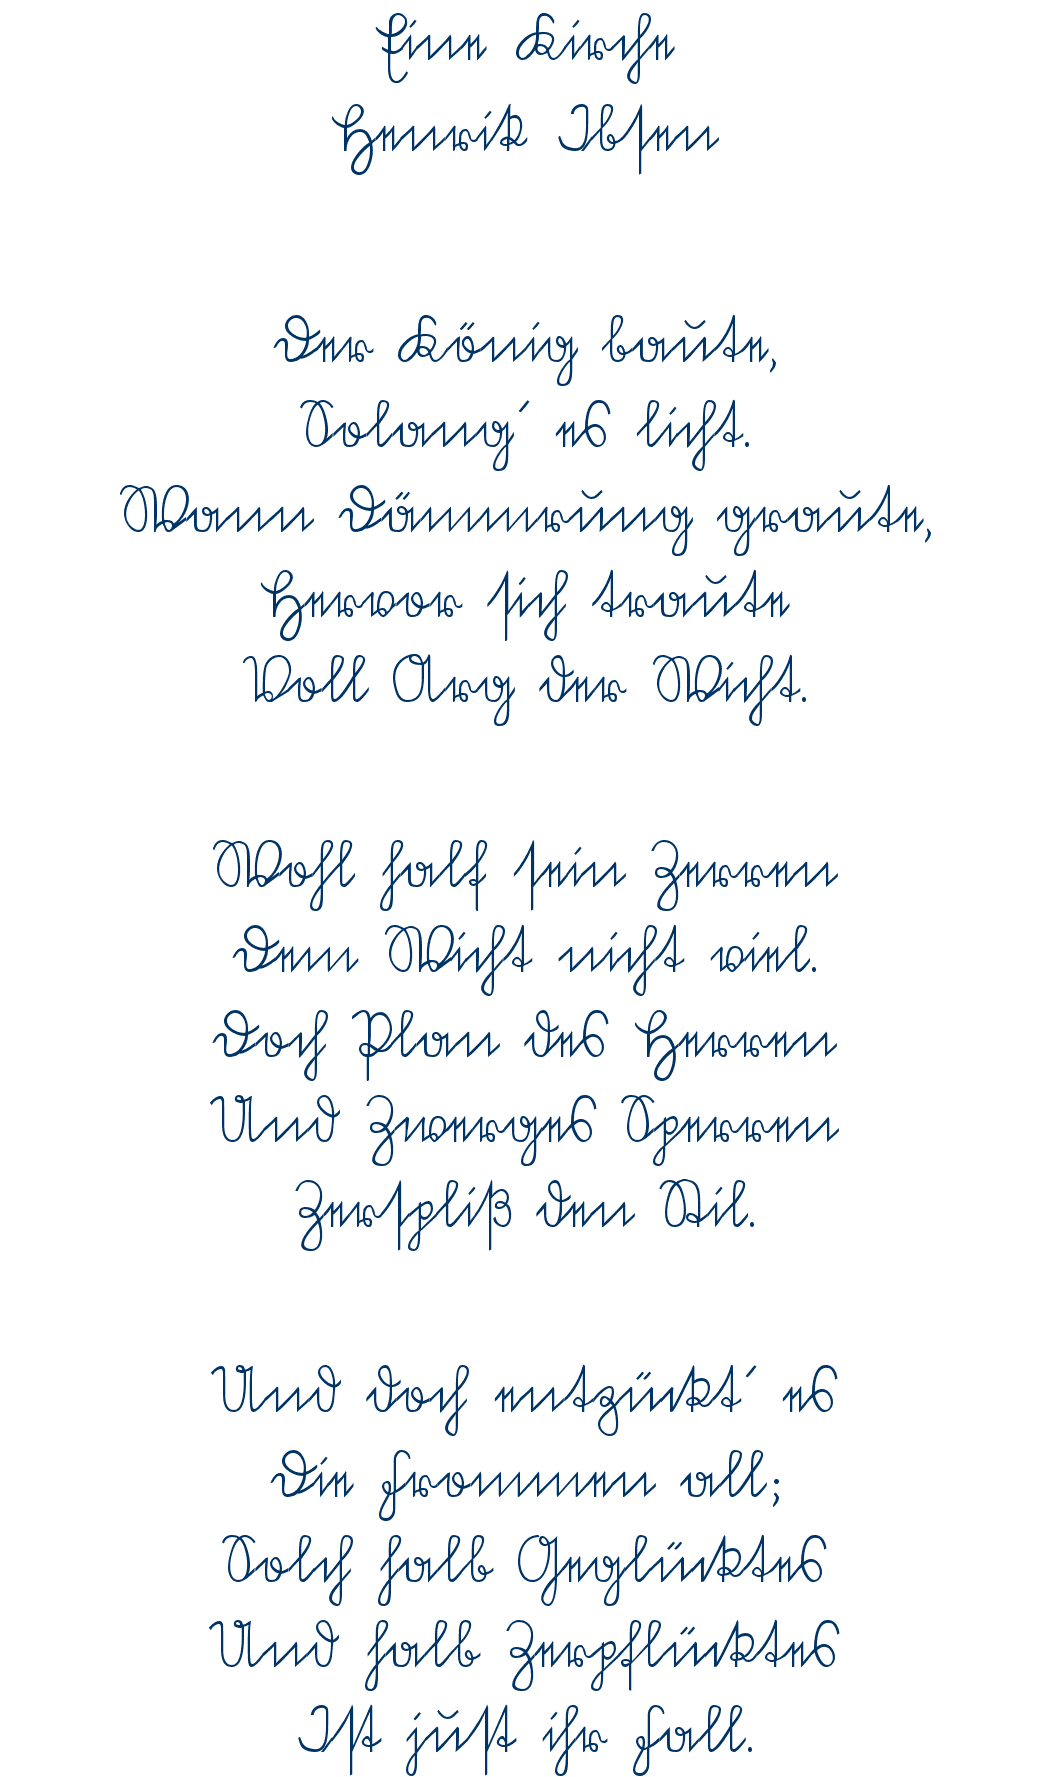 Eine Kirche
Henrik Ibsen
Der König baute,
Solang´ es licht.
Wann Dämmrung graute,
Hervor sich traute
Voll Arg der Wicht.
Wohl half sein Zerren
Dem Wicht nicht viel.
Doch Plan des Herren
Und Zwerges Sperren
Zerspliß den Stil.
Und doch entzückt´ es
Die Frommen all;
Solch halb Geglücktes
Und halb Zerpflücktes
Ist just ihr Fall.